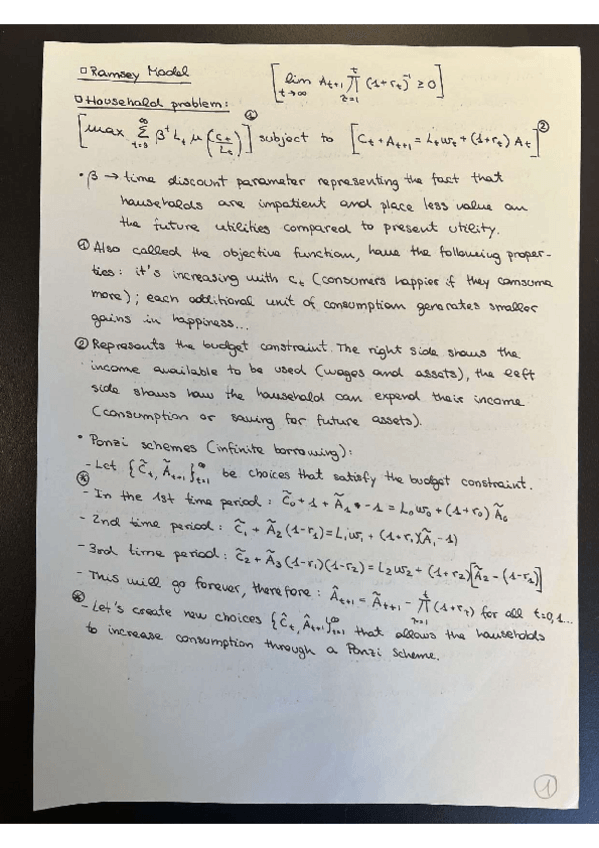 □ Ramsey Model [lim t→∞ A_{t+1} ∏_{z=1}^{t} (1+r_t)^{-1} ≥ 0]
□ Household problem:
[max ∑_{t=0}^{∞} β^t L_t μ(c_t/L_t)]① subject to [C_t + A_{t+1} = L_t w_t + (1+r_t) A_t]②
• β → time discount parameter representing the fact that
households are impatient and place less value on
the future utilities compared to present utility.
① Also called the objective function, have the following proper-
ties: it's increasing with c_t (consumers happier if they consume
more); each additional unit of consumption generates smaller
gains in happiness...
② Represents the budget constraint. The right side shows the
income available to be used (wages and assets), the left
side shows how the household can expend their income
(consumption or saving for future assets).
• Ponzi schemes (infinite borrowing):
- Let {C̃_t, Ã_{t+1}}_{t=1}^{∞} be choices that satisfy the budget constraint.
⊛ - In the 1st time period: C̃_0 + 1 + Ã_1 - 1 = L_0 w_0 + (1+r_0) Ã_0
- 2nd time period: C̃_1 + Ã_2 (1-r_1) = L_1 w_1 + (1+r_1)(Ã_1 - 1)
- 3rd time period: C̃_2 + Ã_3 (1-r_1)(1-r_2) = L_2 w_2 + (1+r_2)[Ã_2 - (1-r_1)]
- This will go forever, therefore: Â_{t+1} = Ã_{t+1} - ∏_{z=1}^{t} (1+r_t) for all t=0,1...
⊛ - Let's create new choices {Ĉ_t, Â_{t+1}}_{t=1}^{∞} that allows the households
to increase consumption through a Ponzi Scheme.
1